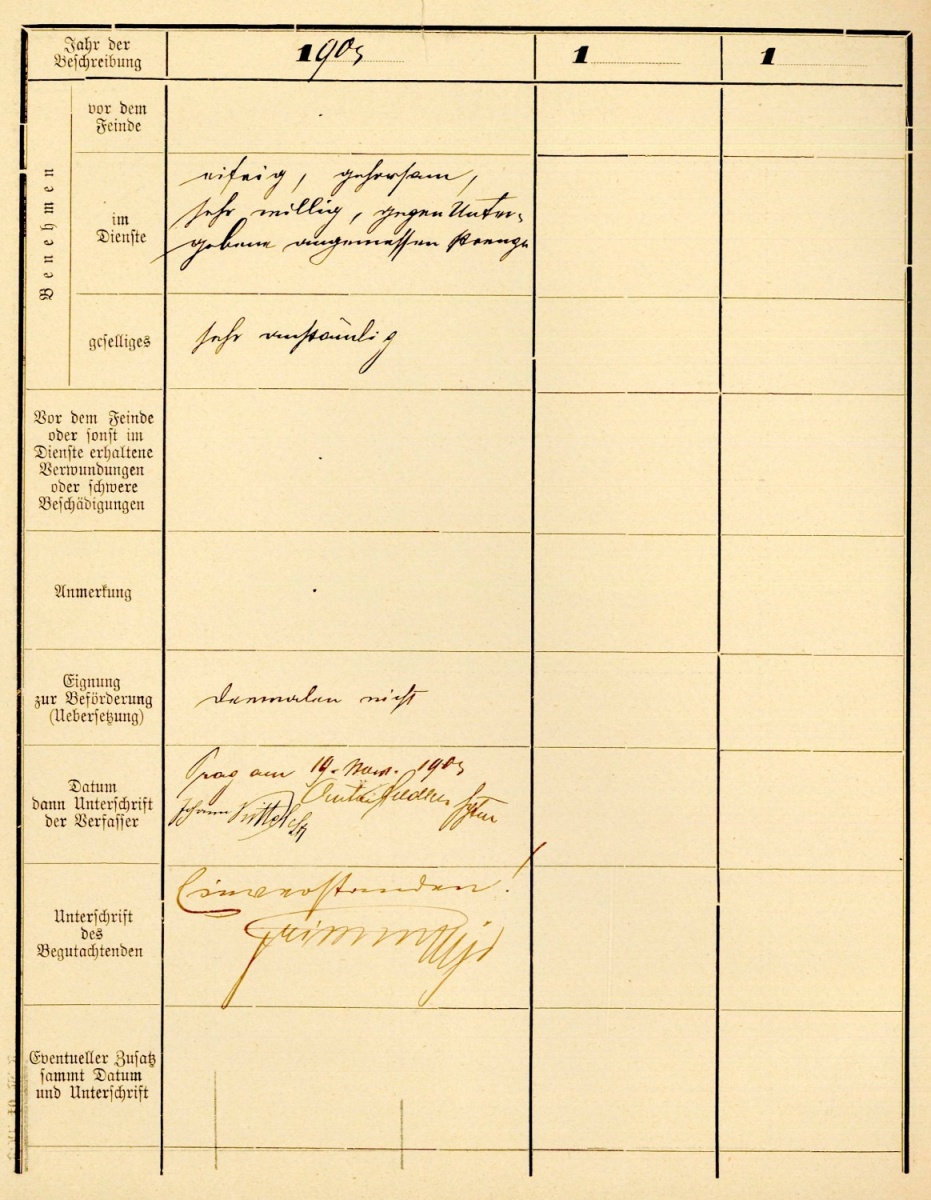 Jahr der
Beschreibung
1905
1
1
Benehmen
vor dem
Feinde
im
Dienste
eifrig, gehorsam,
sehr willig, gegen Unter-
gebene angemessen strenge
geselliges
sehr anständig
Vor dem Feinde
oder sonst im
Dienste erhaltene
Verwundungen
oder schwere
Beschädigungen
Anmerkung
Eignung
zur Beförderung
(Uebersetzung)
dermalen nicht
Datum
dann Unterschrift
der Verfasser
Prag am 19. Nov. 1905
Johann
Unterschrift
des
Begutachtenden
Einverstanden!
Grimm Mjr
Eventueller Zusatz
sammt Datum
und Unterschrift